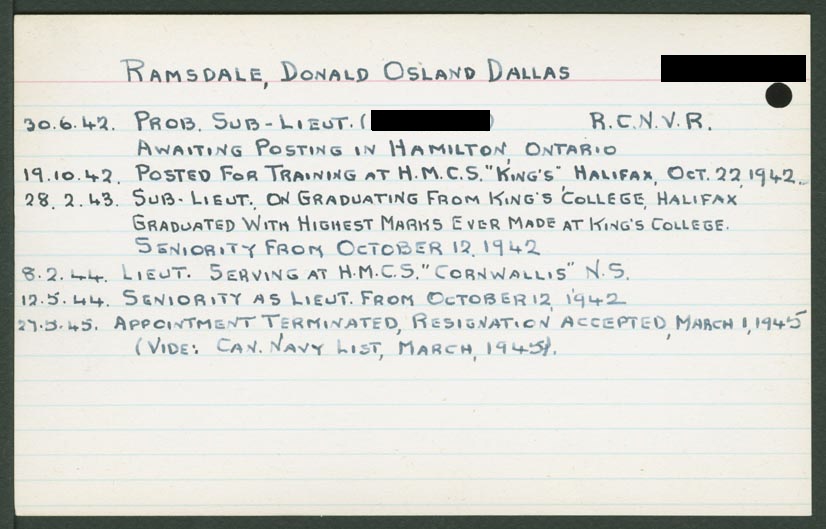 RAMSDALE, DONALD OSLAND DALLAS
30.6.42. PROB. SUB-LIEUT. ( ) R.C.N.V.R.
AWAITING POSTING IN HAMILTON, ONTARIO
19.10.42. POSTED FOR TRAINING AT H.M.C.S. "KING'S" HALIFAX, OCT. 22, 1942.
28.2.43. SUB-LIEUT. ON GRADUATING FROM KING'S COLLEGE, HALIFAX
GRADUATED WITH HIGHEST MARKS EVER MADE AT KING'S COLLEGE.
SENIORITY FROM OCTOBER 12, 1942
8.2.44. LIEUT. SERVING AT H.M.C.S. "CORNWALLIS" N.S.
12.5.44. SENIORITY AS LIEUT. FROM OCTOBER 12, 1942
27.5.45. APPOINTMENT TERMINATED, RESIGNATION ACCEPTED, MARCH 1, 1945
(VIDE: CAN. NAVY LIST, MARCH, 1945).